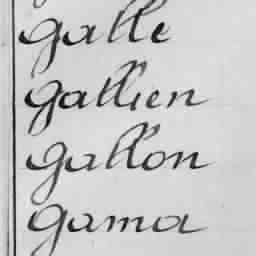 galle
gallien
gallon
gama